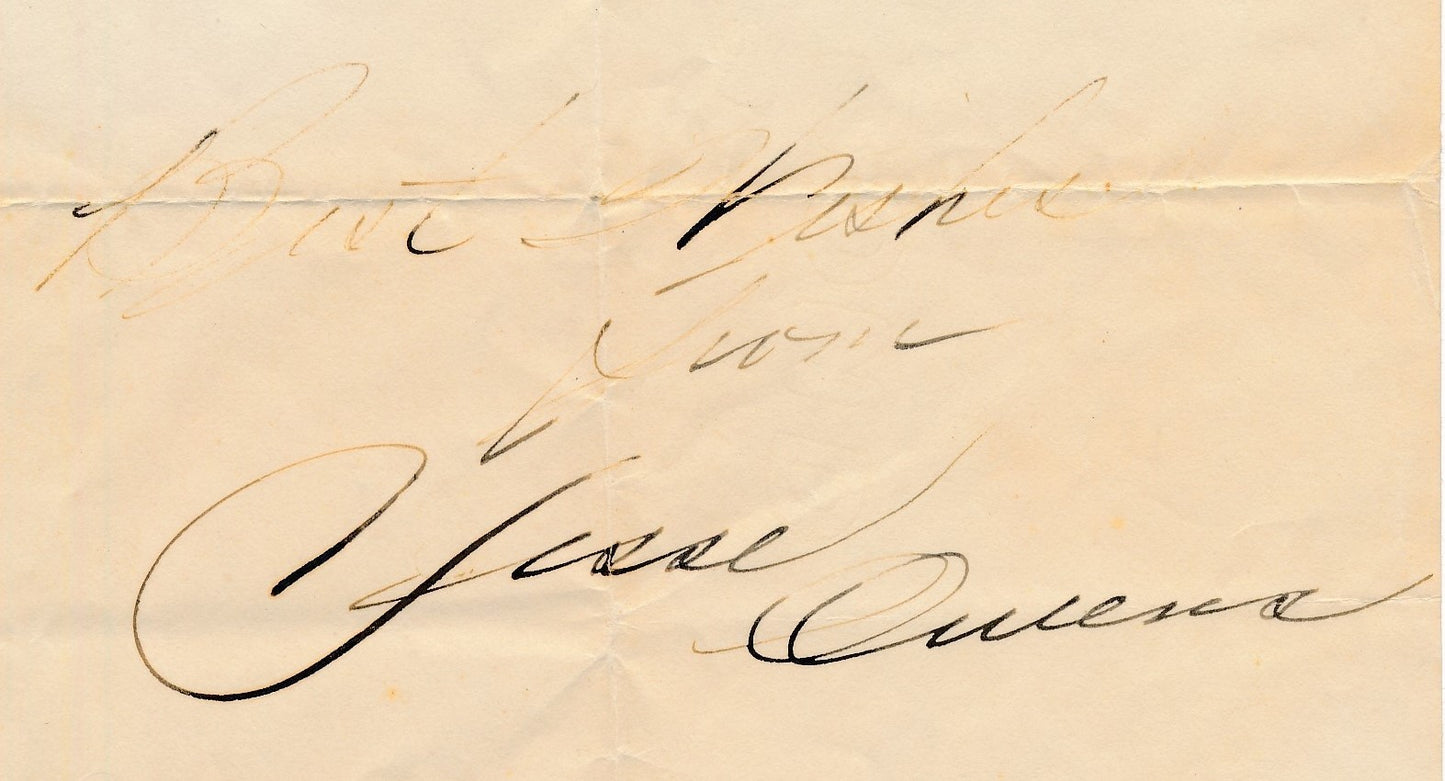 Best Wishes
from
Jesse Owens